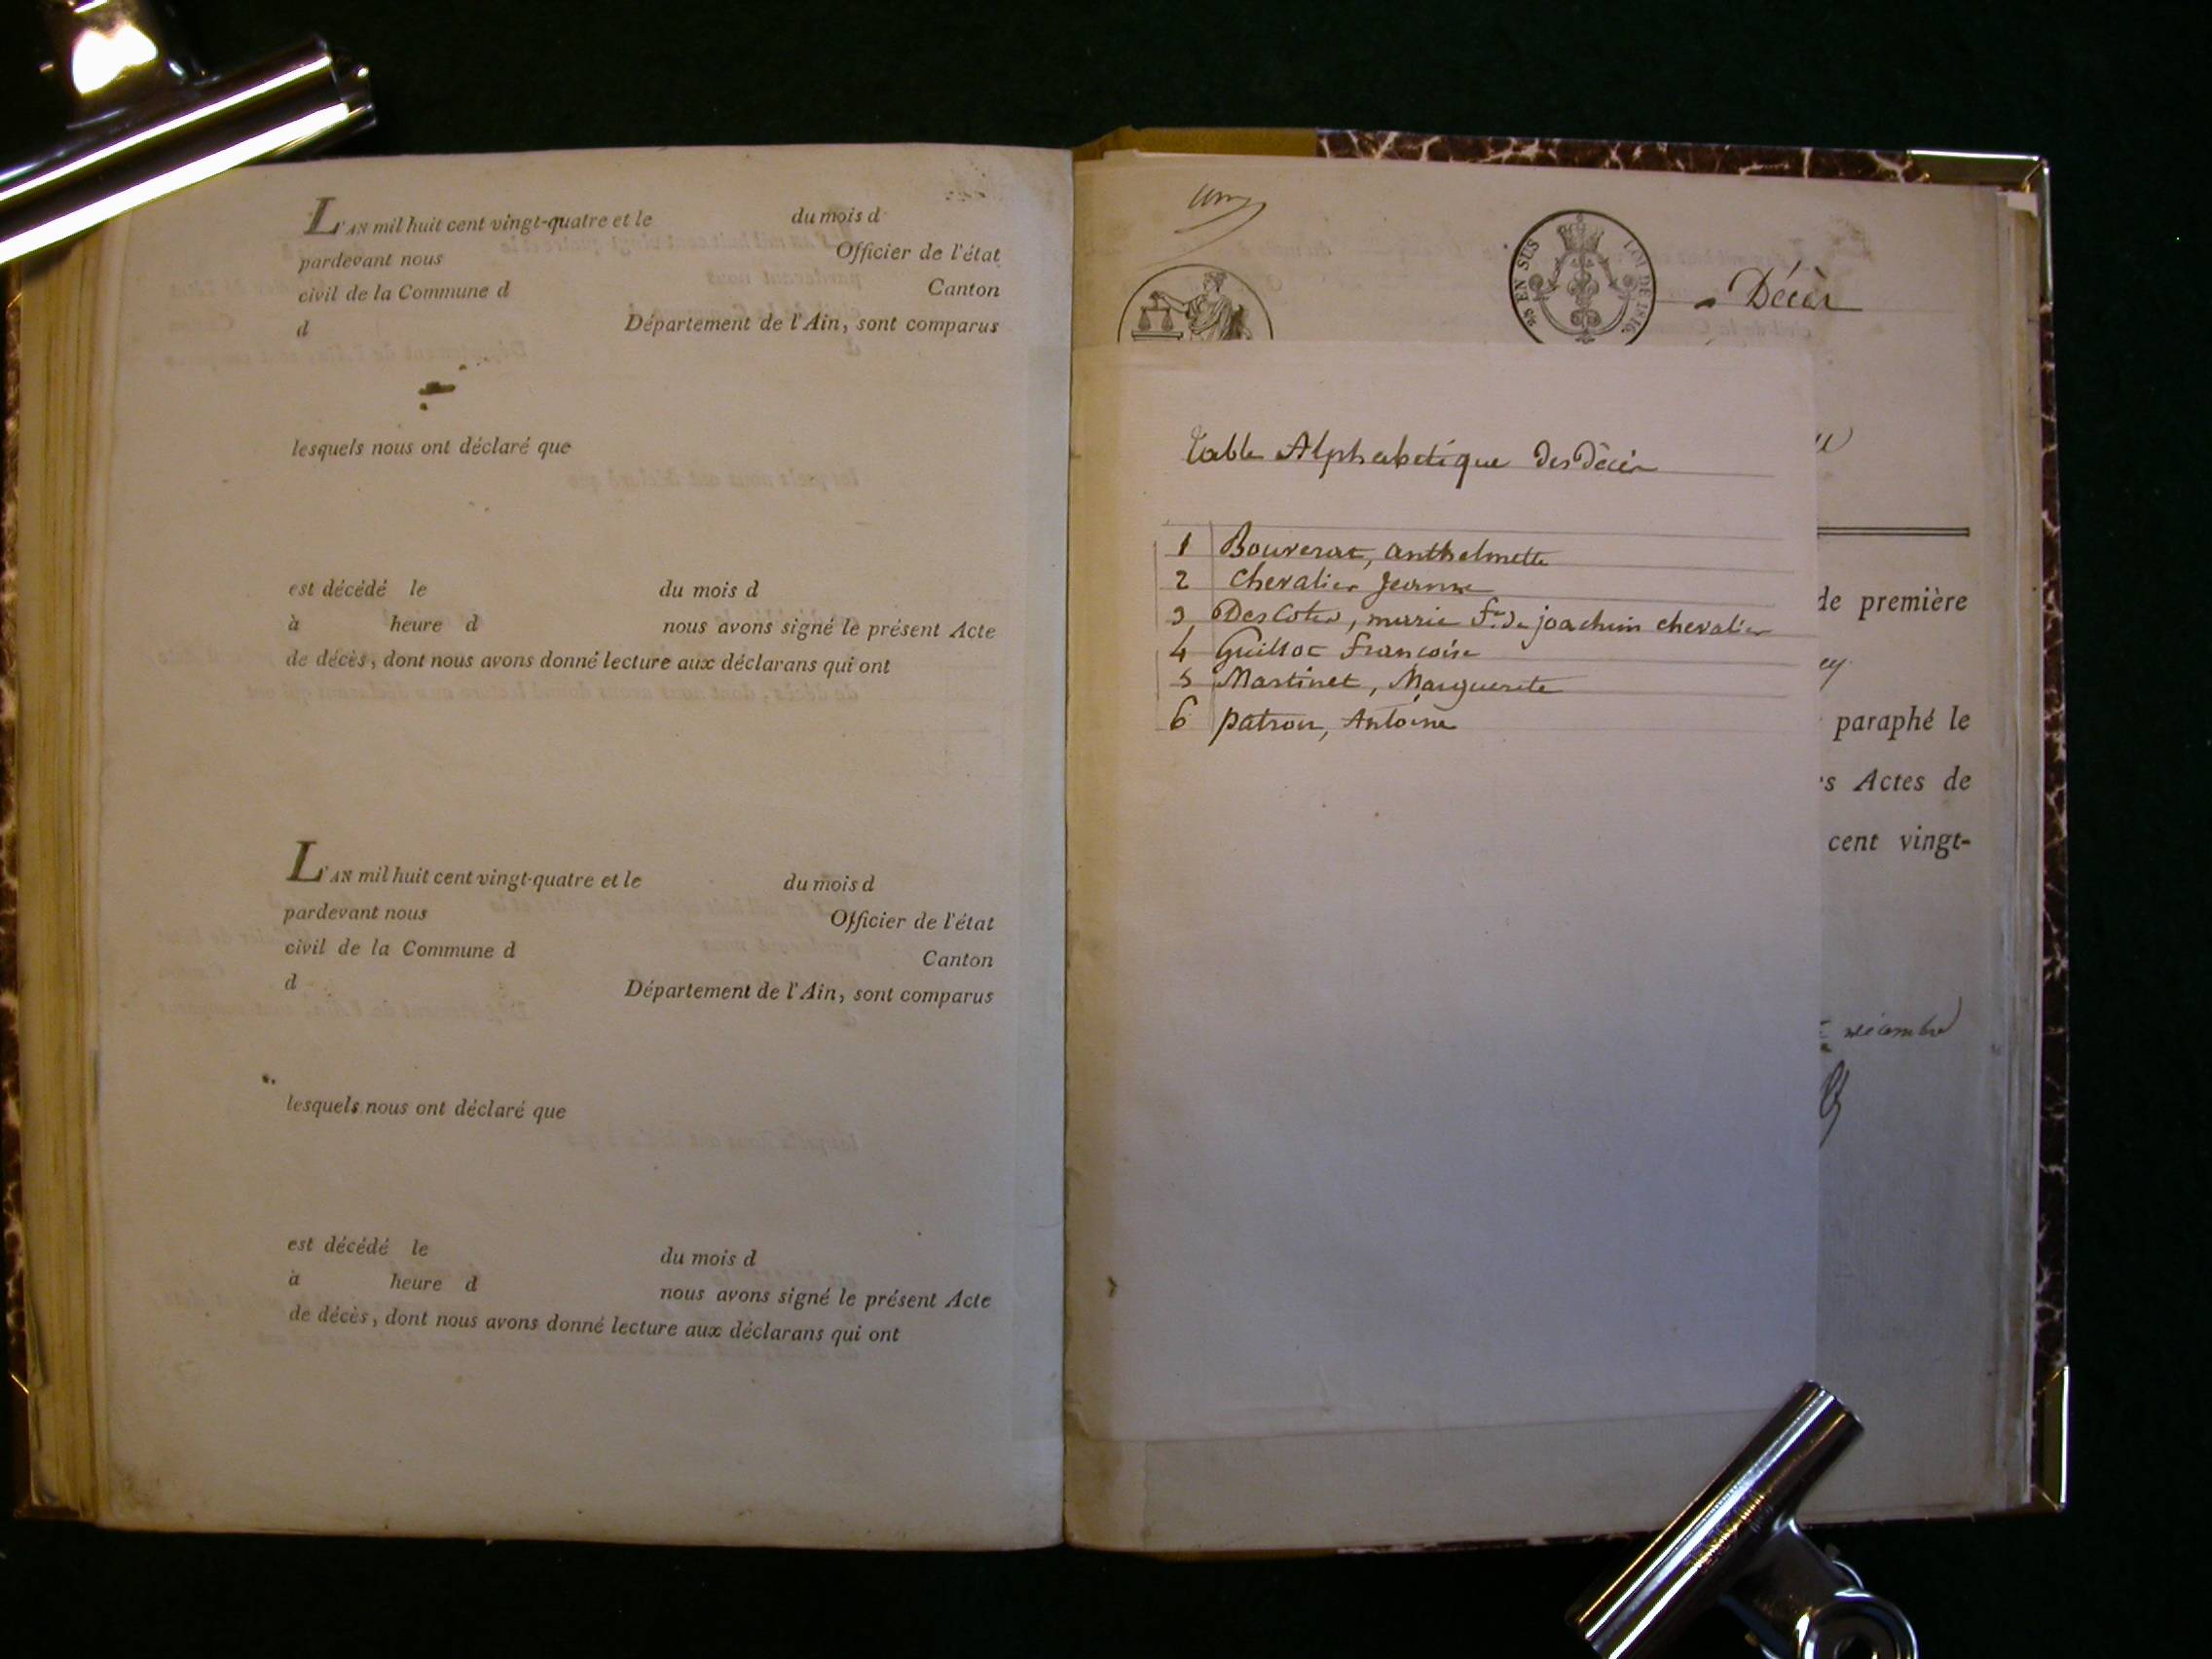 L'AN mil huit cent vingt-quatre et le du mois d
pardevant nous Officier de l'état
civil de la Commune d Canton
d Département de l'Ain, sont comparus
lesquels nous ont déclaré que
est décédé le du mois d
à heure d nous avons signé le présent Acte
de décès, dont nous avons donné lecture aux déclarans qui ont
L'AN mil huit cent vingt-quatre et le du mois d
pardevant nous Officier de l'état
civil de la Commune d Canton
d Département de l'Ain, sont comparus
lesquels nous ont déclaré que
est décédé le du mois d
à heure d nous avons signé le présent Acte
de décès, dont nous avons donné lecture aux déclarans qui ont
EN SUS LOI DE 1816.
Décès
Table Alphabetique des Décès
1 Bouverat, anthelmette
2 Chevalier Jeanne
3 DesCotes, marie fe. de joachim chevalier
4 Guillot francoise
5 Martinet, Marguerite
6 patron, Antoine
de première
ey
paraphé le
s Actes de
cent vingt-
décembre